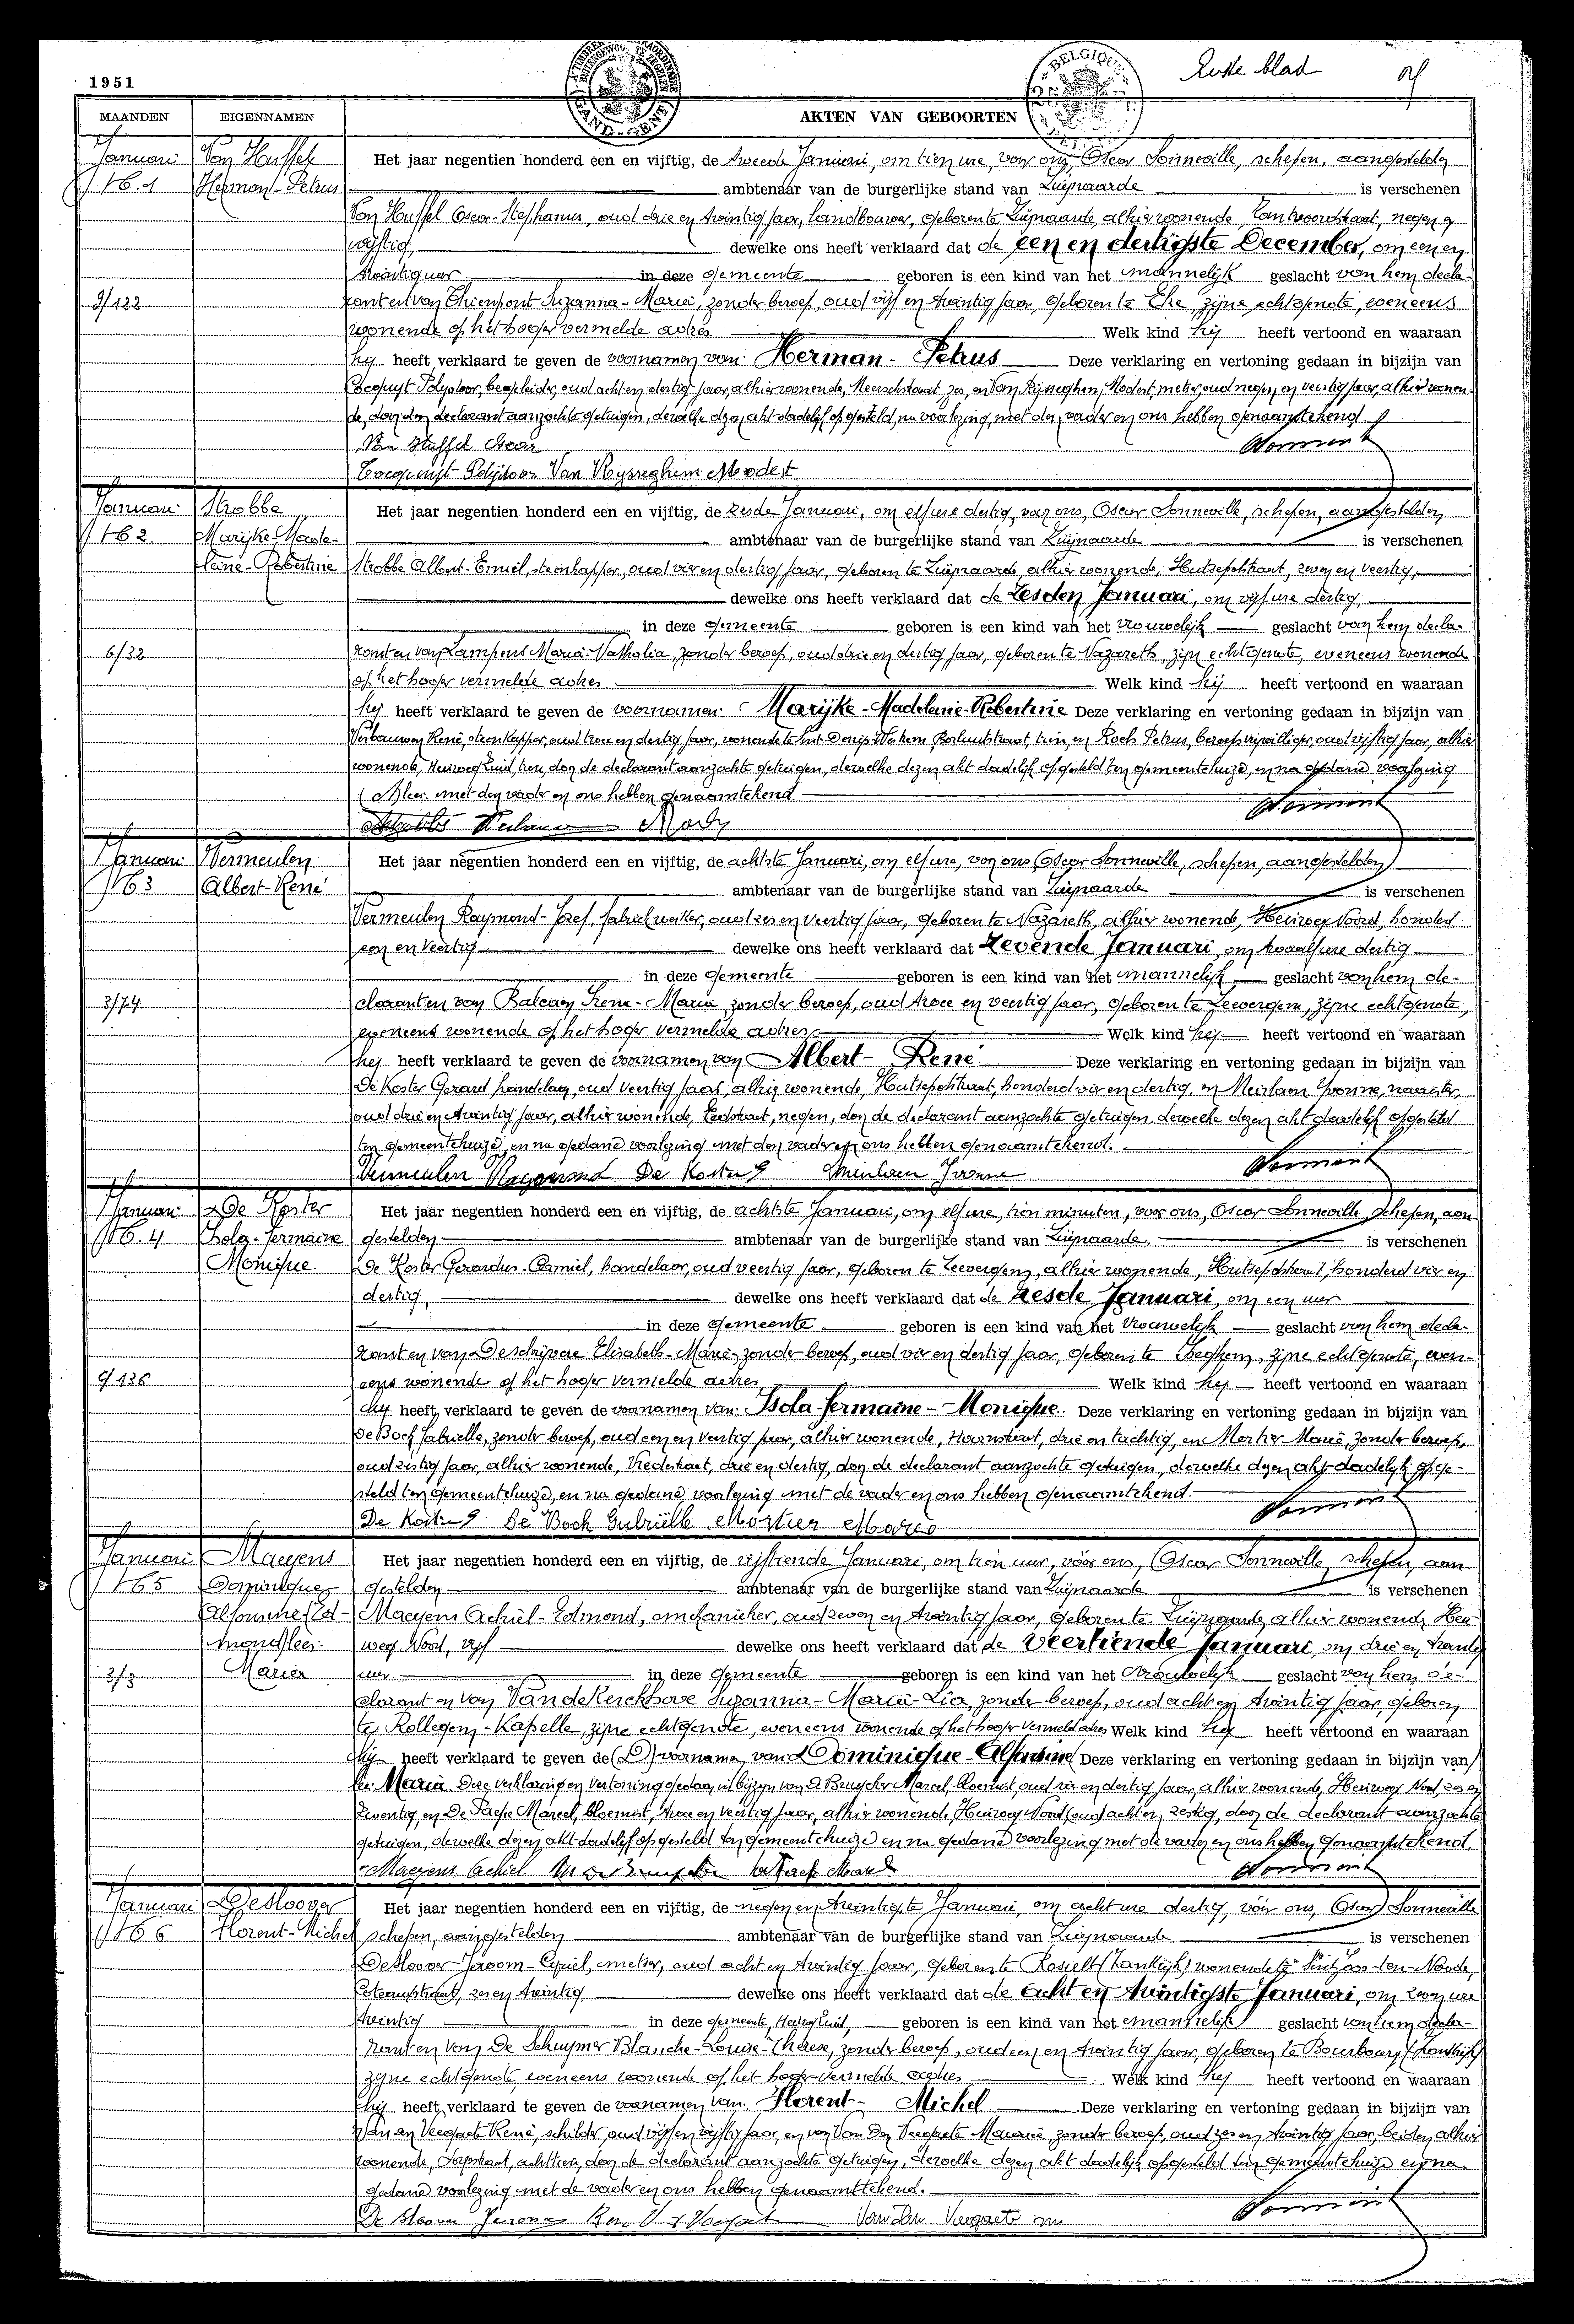 1951
Eerste blad
MAANDEN
EIGENNAMEN
AKTEN VAN GEBOORTEN
A TIMBRER EXTRAORDINAIRE
BUITENGEWOON TE ZEGELEN
GAND-GENT
BELGIQUE
Januari
N° 1
9/122
Van Huffel
Herman-Petrus
Het jaar negentien honderd een en vijftig, de tweede Januari, om tien ure, voor ons, Oscar Sonneville, schepen, aangestelden
ambtenaar van de burgerlijke stand van Zwijnaarde is verschenen
Van Huffel Oscar-Stephanus, oud drie en twintig jaar, landbouwer, geboren te Zwijnaarde, alhier wonende, negen en
vijftig, dewelke ons heeft verklaard dat de een en dertigste December, om een en
twintig uur in deze gemeente geboren is een kind van het mannelijk geslacht van hem decla-
rant en van Thienpont Suzanna-Maria, zonder beroep, oud vijf en twintig jaar, geboren te Eke, zijne echtgenote, eveneens
wonende op het hoger vermelde adres. Welk kind hij heeft vertoond en waaraan
hij heeft verklaard te geven de voornamen van: Herman-Petrus Deze verklaring en vertoning gedaan in bijzijn van
Cocquijt Polydoor, begeleider, oud acht en dertig jaar, alhier wonende, Meerschstraat, zes, en Van Rijsseghem, Modest, metser, oud negen en veertig jaar, alhier wonen-
de, door den declarant aanzochte getuigen, dewelke dezen akt dadelijk opgesteld, na voorlezing, met den vader en ons hebben genaamtekend.
Van Huffel Oscar
Cocquijt Polydoor Van Rysseghem Modest
Januari
N° 2
6/32
Strobbe
Marijke-Made-
leine-Robertine
Het jaar negentien honderd een en vijftig, de zesde Januari, om elf ure dertig, voor ons, Oscar Sonneville, schepen, aangestelden
ambtenaar van de burgerlijke stand van Zwijnaarde is verschenen
Strobbe Albert-Emiel, steenkapper, oud vier en dertig jaar, geboren te Zwijnaarde, alhier wonende, Hutsepotstraat, zeven en veertig,
dewelke ons heeft verklaard dat de zesden Januari, om vijf ure dertig,
in deze gemeente geboren is een kind van het vrouwelijk geslacht van hem decla-
rant en van Lampens Maria-Nathalia, zonder beroep, oud drie en dertig jaar, geboren te Nazareth, zijn echtgenote, eveneens wonende
op het hoger vermelde adres. Welk kind hij heeft vertoond en waaraan
hij heeft verklaard te geven de voornamen: Marijke-Madeleine-Robertine Deze verklaring en vertoning gedaan in bijzijn van
Verbauwen René, steenkapper, oud twee en dertig jaar, wonende te Sint Denijs-Westrem, Borluutstraat, tien, en Roels Petrus, beroepsvrijwilliger, oud vijftig jaar, alhier
wonende, Heirweg Zuid, tien, door de declarant aanzochte getuigen, dewelke dezen akt dadelijk opgesteld ten gemeentehuize, en na gedane voorlezing
met den vader en ons hebben genaamtekend.
Januari
N° 3
3/74
Vermeulen
Albert-René
Het jaar negentien honderd een en vijftig, de achtste Januari, om elf ure, voor ons, Oscar Sonneville, schepen, aangestelden
ambtenaar van de burgerlijke stand van Zwijnaarde is verschenen
Vermeulen Raymond-Jozef, fabriekwerker, oud zes en veertig jaar, geboren te Nazareth, alhier wonende, Heirweg Noord, honderd
een en veertig dewelke ons heeft verklaard dat zevende Januari, om twaalf ure dertig
in deze gemeente geboren is een kind van het mannelijk geslacht van hem de-
clarant en van Balcaen Irena-Maria, zonder beroep, oud twee en veertig jaar, geboren te Zeevergem, zijne echtgenote,
eveneens wonende op het hoger vermelde adres. Welk kind hij heeft vertoond en waaraan
hij heeft verklaard te geven de voornamen van Albert-René. Deze verklaring en vertoning gedaan in bijzijn van
De Koster Gerard, handelaar, oud veertig jaar, alhier wonende, Hutsepotstraat, honderd vier en dertig, en Meirlaen Yvonne, naaister,
oud drie en twintig jaar, alhier wonende, Eedstraat, negen, door de declarant aanzochte getuigen, dewelke dezen akt dadelijk opgesteld
ten gemeentehuize, en na gedane voorlezing met den vader en ons hebben genaamtekend.
Vermeulen Raymond De Koster G Meirlaen Yvonne
Januari
N° 4
9/136
De Koster
Isola-Jermaine
Monique
Het jaar negentien honderd een en vijftig, de achtste Januari, om elf ure, tien minuten, voor ons, Oscar Sonneville, schepen, aan-
gestelden ambtenaar van de burgerlijke stand van Zwijnaarde. is verschenen
De Koster Gerardus-Camiel, handelaar, oud veertig jaar, geboren te Zeevergem, alhier wonende, Hutsepotstraat, honderd vier en
dertig, dewelke ons heeft verklaard dat de zesde Januari, om een uur
in deze gemeente geboren is een kind van het vrouwelijk geslacht van hem decla-
rant en van Deschrijvere Elisabeth-Maria, zonder beroep, oud vier en dertig jaar, geboren te Iseghem, zijne echtgenote, even-
eens wonende op het hoger vermelde adres Welk kind hij heeft vertoond en waaraan
hij heeft verklaard te geven de voornamen van: Isola-Jermaine-Monique. Deze verklaring en vertoning gedaan in bijzijn van
De Bock Gabrielle, zonder beroep, oud een en veertig jaar, alhier wonende, Hoornstraat, drie en tachtig, en Mortier Marie, zonder beroep,
oud zestig jaar, alhier wonende, Vredestraat, drie en dertig, door de declarant aanzochte getuigen, dewelke dezen akt dadelijk opge-
steld ten gemeentehuize, en na gedane voorlezing met de vader en ons hebben genaamtekend.
De Koster G De Bock Gabriëlle Mortier Maria
Januari
N° 5
3/3
Maeyens
Dominique-
Alfonsine (Ed-
mond) lees:
Maria
Het jaar negentien honderd een en vijftig, de vijftiende Januari, om tien uur, vóór ons, Oscar Sonneville, schepen, aan-
gestelden ambtenaar van de burgerlijke stand van Zwijnaarde is verschenen
Maeyens Achiel-Edmond, mechanieker, oud zeven en twintig jaar, geboren te Zwijnaarde, alhier wonende, Heir-
weg Noord, vijf dewelke ons heeft verklaard dat de veertiende Januari, om drie en twintig
uur in deze gemeente geboren is een kind van het vrouwelijk geslacht van hem de-
clarant en van Vandekerckhove Suzanna-Maria-Lia, zonder beroep, oud acht en twintig jaar, geboren
te Rollegem-Kapelle, zijne echtgenote, eveneens wonende op het hoger vermeld adres Welk kind hij heeft vertoond en waaraan
hij heeft verklaard te geven de (D) voornamen van: Dominique-Alfonsine (Deze verklaring en vertoning gedaan in bijzijn van)
lees: Maria. Deze verklaring en vertoning gedaan in bijzijn van De Bruycker Marcel, bloemist, oud vier en dertig jaar, alhier wonende, Heirweg Noord, zes en
zeventig, en De Paepe Marcel, bloemist, twee en veertig jaar, alhier wonende, Heirweg Noord (oud) acht en zestig, door de declarant aanzochte
getuigen, dewelke dezen akt dadelijk opgesteld ten gemeentehuize en na gedane voorlezing met de vader en ons hebben genaamtekend.
Maeyens Achiel
Januari
N° 6
De Sloover
Florent-Michel
Het jaar negentien honderd een en vijftig, de negen en twintigste Januari, om acht ure dertig, vóór ons, Oscar Sonneville
schepen, aangestelden ambtenaar van de burgerlijke stand van Zwijnaarde is verschenen
De Sloover Jeroom-Cyriel, metser, oud acht en twintig jaar, geboren te (Frankrijk) wonende te Sint Joos-ten-Node,
zes en twintig dewelke ons heeft verklaard dat de acht en twintigste Januari, om zeven ure
twintig in deze gemeente, Heirweg Zuid, geboren is een kind van het mannelijk geslacht van hem decla-
rant en van De Schuymer Blanche-Louise-Thérèse, zonder beroep, oud een en twintig jaar, geboren te Bourbourg (Frankrijk)
zijne echtgenote, eveneens wonende op het hoger vermelde adres Welk kind hij heeft vertoond en waaraan
hij heeft verklaard te geven de voornamen van: Florent-Michel Deze verklaring en vertoning gedaan in bijzijn van
René, schilder, oud vijf en vijftig jaar, en van Van Den Veegaete Maurice, zonder beroep, oud zes en twintig jaar, beiden alhier
wonende, Dorpstraat, achttien, door de declarant aanzochte getuigen, dewelke dezen akt dadelijk opgesteld ten gemeentehuize en na
gedane voorlezing met de vader en ons hebben genaamtekend.
De Sloover Jerome